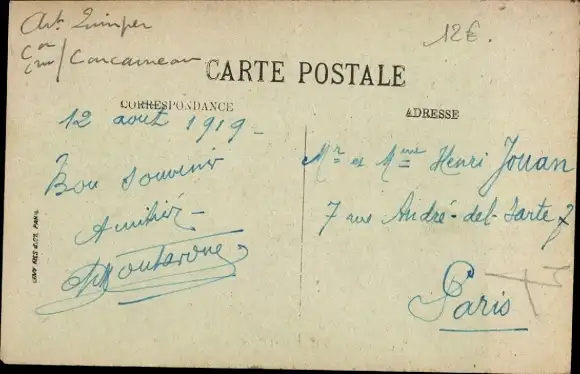 Arrt Quimper
Con
Cne / Concarneau
12€.
CARTE POSTALE
CORRESPONDANCE
ADRESSE
12 août 1919 -
Bon souvenir
Amitiés -
Mr et Mme Henri Jouan
7 rue André-del-Sarte
Paris
LEVY FILS & CIE PARIS